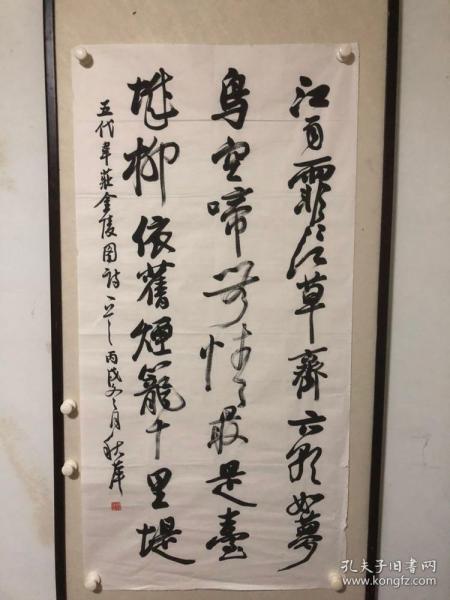 江雨霏霏江草齊六朝如夢
鳥空啼無情最是臺
城柳依舊煙籠十里堤
五代韋莊金陵圖詩一首丙戌冬月秋岸
孔夫子旧书网
www.kongfz.com